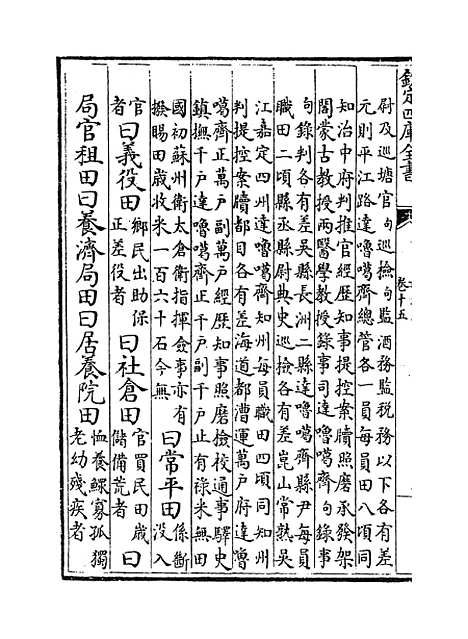 欽定四庫全書
卷十五
尉及巡塘官巡檢司監酒務監稅務以下各有差
元則平江路達嚕噶齊總管各一員每員田八頃同
知治中府判推官經歷知事提控案牘照磨承發架
閣蒙古教授兩醫學教授録事司達嚕噶齊司録事
司録判各有差吳縣長洲二縣達嚕噶齊縣尹每員
職田二頃縣丞縣尉典史巡檢各有差崑山常熟吳
江嘉定四州達嚕噶齊知州每員職田四頃同知州
判提控案牘都目各有差海道都漕運萬戶府達嚕
噶齊正萬戶副萬戶經歷知事照磨檢校通事驛史
鎮撫千戶達嚕噶齊正千戶副千戶止有禄米無田
國初蘇州衛太倉衛指揮僉事亦有
撥賜田歲收米一百六十石今無
曰常平田
係斷
没入
官
者
曰義役田
鄉民出助保
正差役者
曰社倉田
官買民田歲
儲備荒者
曰
局官租田曰養濟局田曰居養院田
恤養鰥寡孤獨
老幼殘疾者